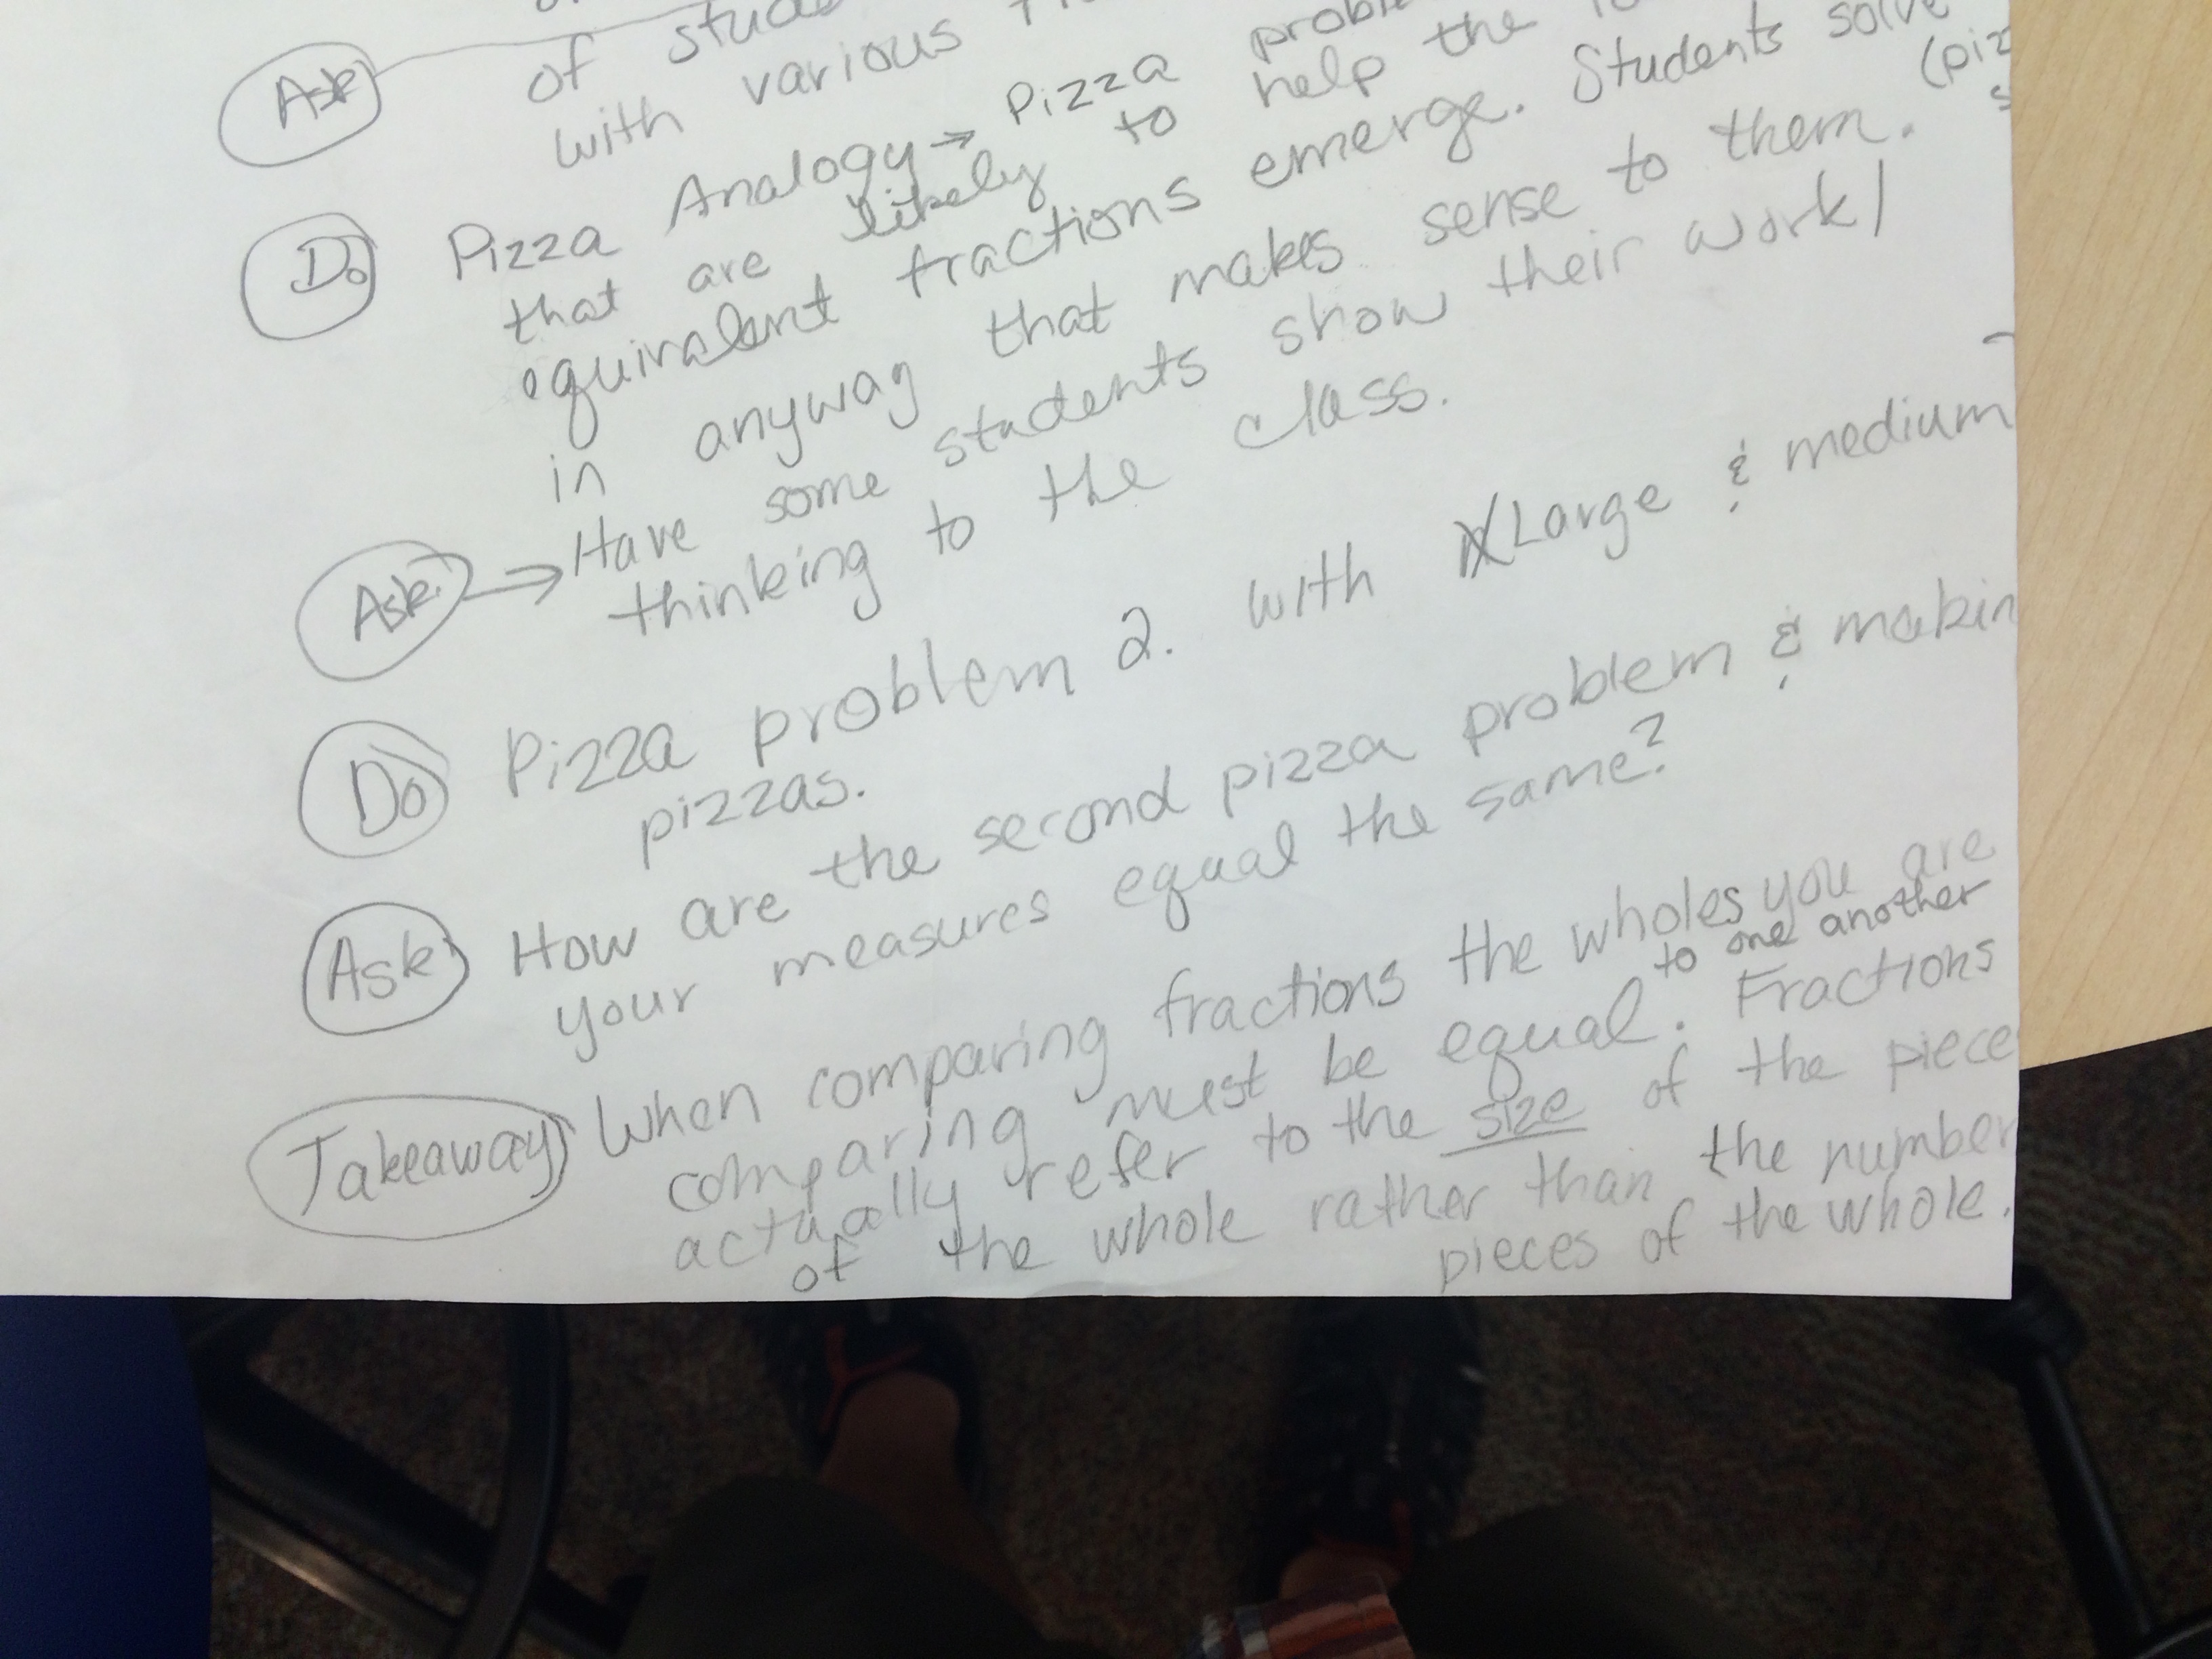 Ask of
with various
Do Pizza Analogy → Pizza
that are likely to help the
equivalent fractions emerge. Students solve
in anyway that makes sense to them. (piz
Ask → Have some students show their work/
thinking to the class.
Do Pizza problem 2. with Large & medium
pizzas.
Ask How are the second pizza problem & makin
your measures equal the same?
Takeaway When comparing fractions the wholes you are
comparing must be equal to one another. Fractions
actually refer to the size of the piece
of the whole rather than the number
pieces of the whole.